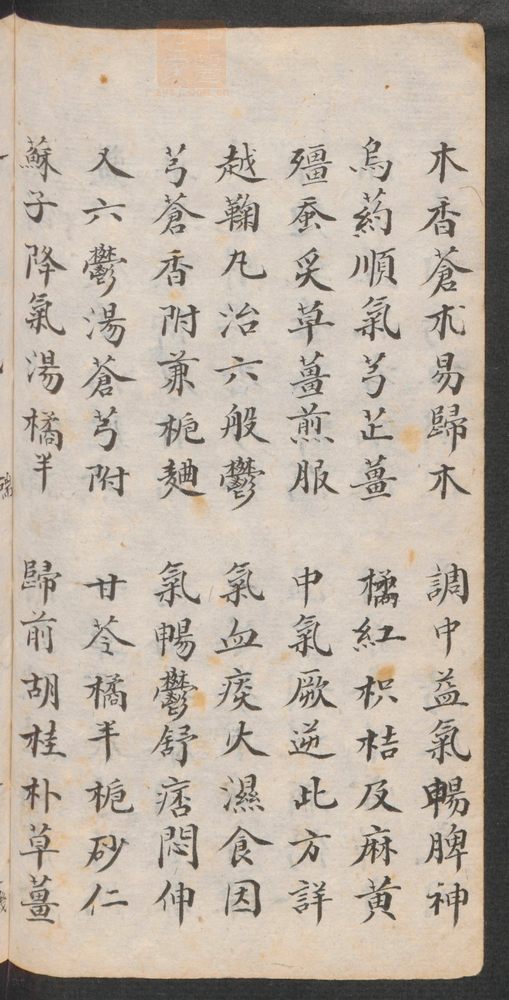 木香蒼朮易歸木　調中益氣暢脾神
烏葯順氣芎芷薑　橘紅枳桔及麻黃
殭蚕炙草薑煎服　中氣厥逆此方詳
越鞠丸治六般鬱　氣血痰火濕食因
芎蒼香附兼栀麯　氣暢鬱舒痞悶伸
又六鬱湯蒼芎附　甘苓橘半栀砂仁
蘇子降氣湯橘半　歸前胡桂朴草薑